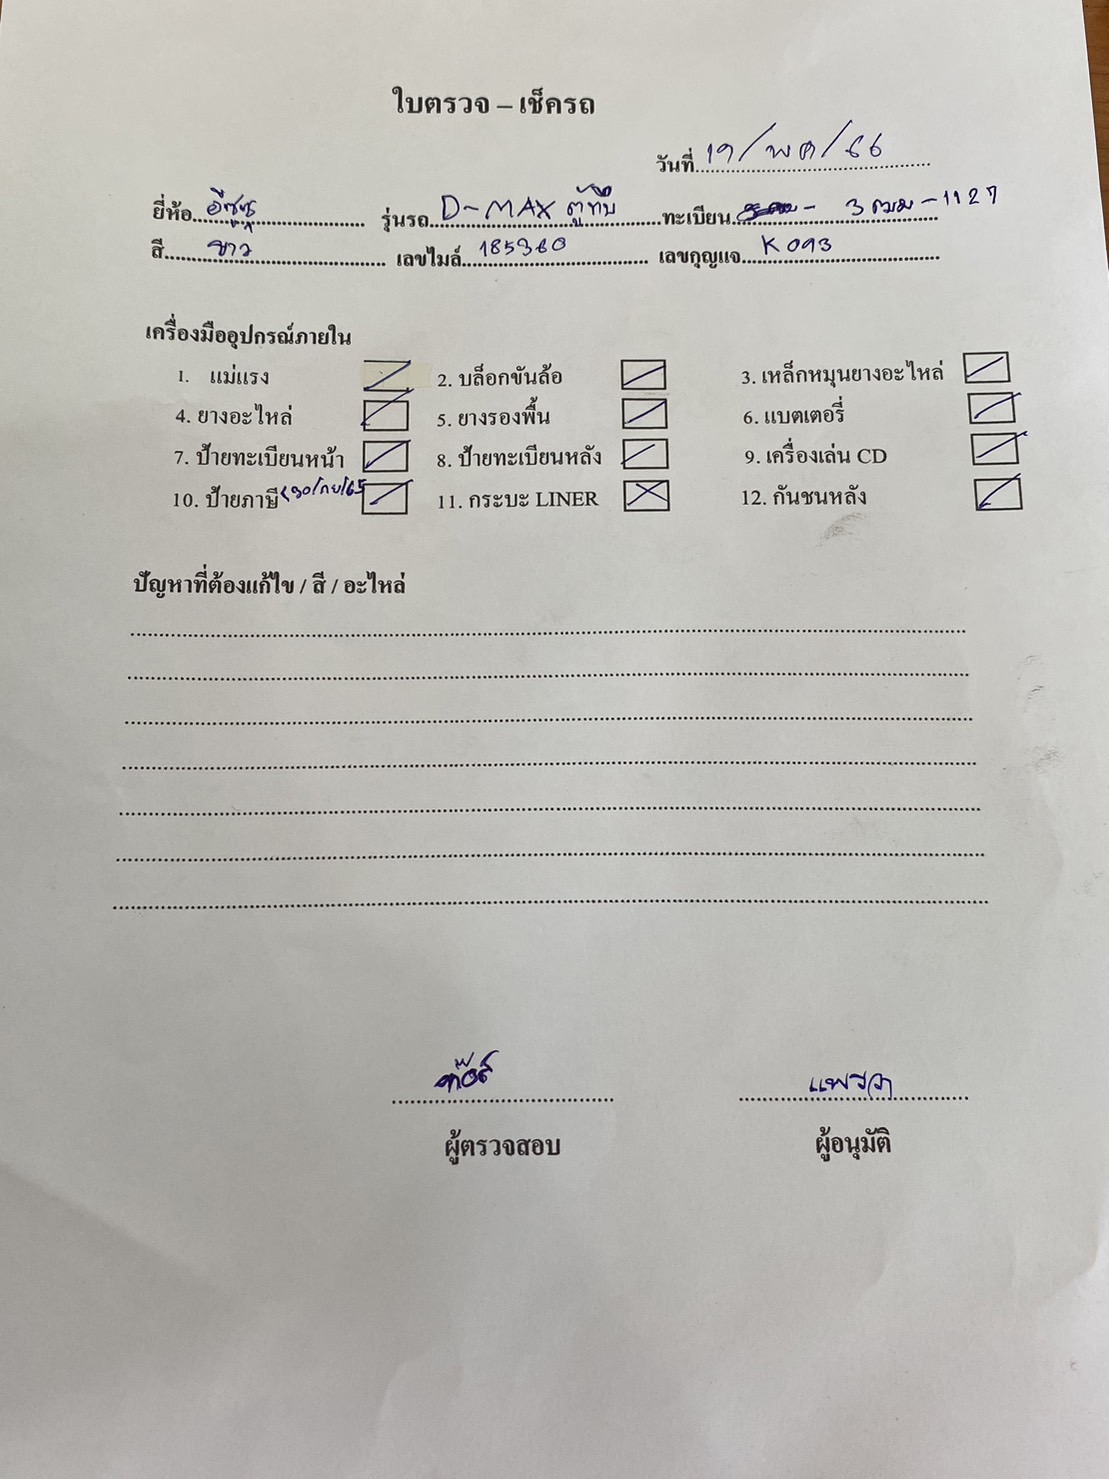 ใบตรวจ – เช็ครถ
วันที่ 19/พค/66
ยี่ห้อ อีซูซุ รุ่นรถ D-MAX ตู้ทึบ ทะเบียน - 3ฒฒ-1127
สี ขาว เลขไมล์ 185360 เลขกุญแจ K093
เครื่องมืออุปกรณ์ภายใน
1. แม่แรง 2. บล็อกขันล้อ 3. เหล็กหมุนยางอะไหล่
4. ยางอะไหล่ 5. ยางรองพื้น 6. แบตเตอรี่
7. ป้ายทะเบียนหน้า 8. ป้ายทะเบียนหลัง 9. เครื่องเล่น CD
10. ป้ายภาษี <30/กย/65 11. กระบะ LINER 12. กันชนหลัง
ปัญหาที่ต้องแก้ไข / สี / อะไหล่
แพรวา
ผู้ตรวจสอบ ผู้อนุมัติ